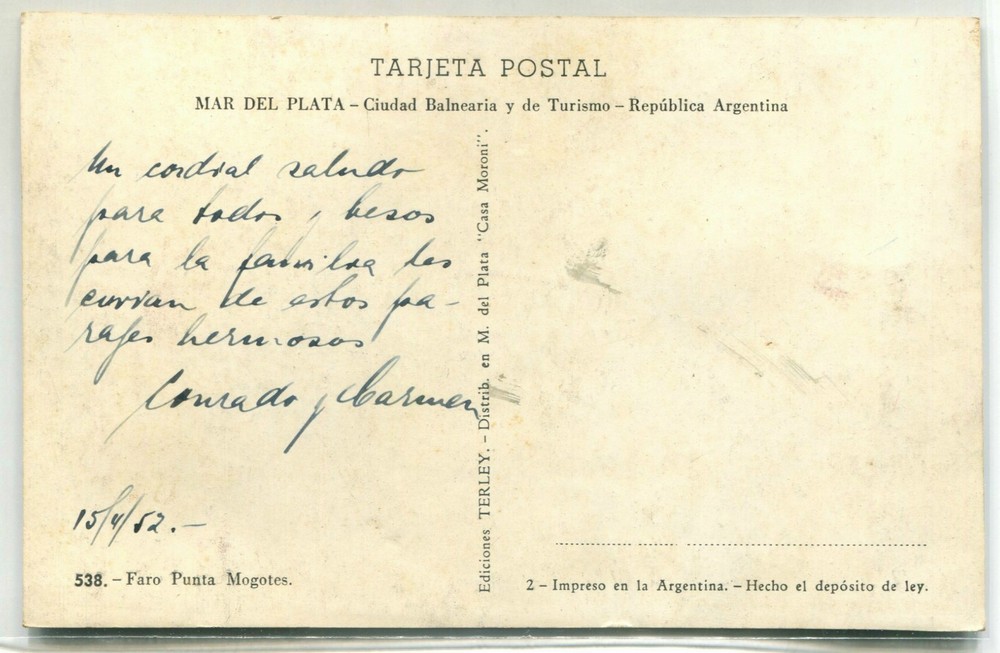 TARJETA POSTAL
MAR DEL PLATA – Ciudad Balnearia y de Turismo – República Argentina
Un cordial saludo
para todos y besos
para la familia les
envian de estos pa-
rajes hermosos
Conrado y Carmen
15/4/52.–
538. – Faro Punta Mogotes.
Ediciones TERLEY. – Distrib. en M. del Plata "Casa Moroni".
2 – Impreso en la Argentina. – Hecho el depósito de ley.